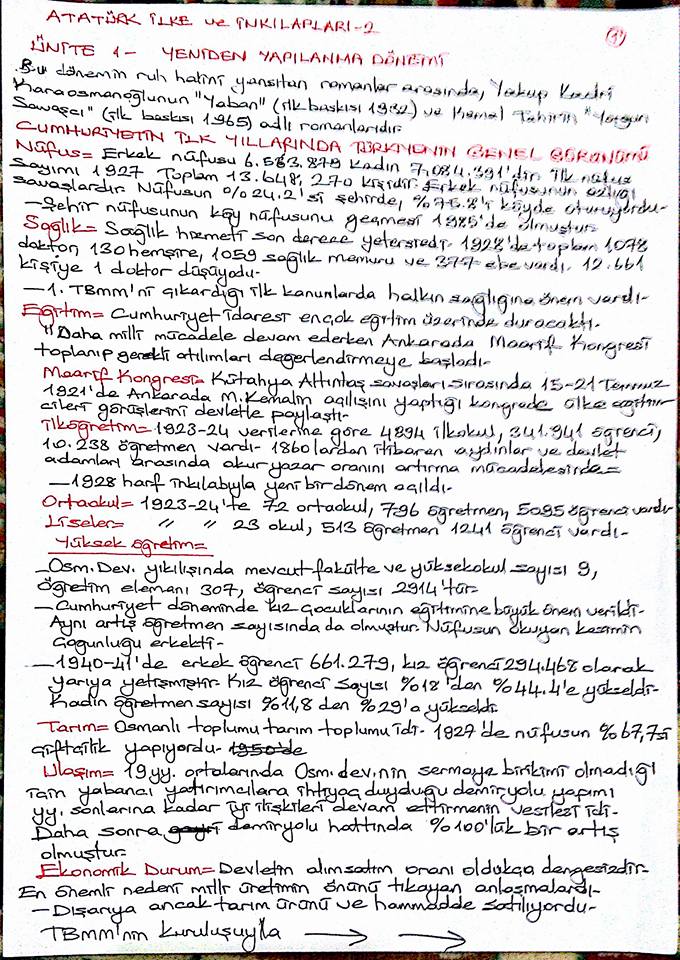 ATATÜRK İLKE ve İNKILAPLARI-2
1
ÜNİTE 1- YENİDEN YAPILANMA DÖNEMİ
Bu dönemin ruh halini yansıtan romanlar arasında, Yakup Kadri
Karaosmanoğlunun "Yaban" (ilk baskısı 1932) ve Kemal Tahirin "Yorgun
Savaşçı" (ilk baskısı 1965) adlı romanlarıdır.
CUMHURİYETİN İLK YILLARINDA TÜRKİYENİN GENEL GÖRÜNÜMÜ
Nüfus= Erkek nüfusu 6.563.879 kadın 7.084.391'dir ilk nüfus
sayımı 1927 Toplam 13.648,270 kişidir. Erkek nüfusunun azlığı
savaşlardır. Nüfusun %24.2'si şehirde, %75.8'i köyde oturuyordu-
-Şehir nüfusunun köy nüfusunu geçmesi 1985'de olmuştur-
Sağlık= Sağlık hizmeti son derece yetersizdi- 1928'de toplam 1078
doktor, 130 hemşire, 1059 sağlık memuru ve 377 ebe vardı. 12.661
kişiye 1 doktor düşüyodu-
-1. TBMM'ni çıkardığı ilk kanunlarda halkın sağlığına önem vardı-
Eğitim= Cumhuriyet idaresi ençok eğitim üzerinde duracaktı-
"Daha milli mücadele devam ederken Ankarada Maarif Kongresi
toplanıp gerekli atılımları değerlendirmeye başladı-
Maarif Kongresi= Kütahya Altıntaş savaşları sırasında 15-21 Temmuz
1921'de Ankarada M.Kemalin açılışını yaptığı kongrede ülke eğitim-
cileri görüşlerini devletle paylaştı-
ilköğretim= 1923-24 verilerine göre 4894 ilkokul, 341.941 öğrenci,
10.238 öğretmen vardı- 1860lardan itibaren aydınlar ve devlet
adamları arasında okur yazar oranını artırma mücadelesinde=
-1928 harf inkılabıyla yeni bir dönem açıldı-
Ortaokul= 1923-24'te 72 ortaokul, 796 öğretmen, 5095 öğrenci vardı-
Liseler= " " 23 okul, 513 öğretmen 1241 öğrenci vardı-
Yüksek öğretim=
-Osm. Dev. yıkılışında mevcut fakülte ve yüksekokul sayısı 9,
öğretim elemanı 307, öğrenci sayısı 2914'tür-
- Cumhuriyet döneminde kız çocuklarının eğitimine büyük önem verildi-
Aynı artış öğretmen sayısında da olmuştur. Nüfusun okuyan kesimin
çoğunluğu erkekti-
-1940-41'de erkek öğrenci 661.279, kız öğrenci 294.468 olarak
yarıya yetişmiştir- Kız öğrenci sayısı %18'den %44.4'e yükseldi-
Kadın öğretmen sayısı %11,8 den %29'a yükseldi-
Tarım= Osmanlı toplumu tarım toplumu idi- 1927'de nüfusun %67,7si
çiftçilik yapıyordu- 1950'de
Ulaşım= 19yy. ortalarında Osm. dev.nin sermaye birikimi olmadığı
için yabancı yatırımcılara ihtiyaç duyduğu demiryolu yapımı
yy. sonlarına kadar iyi ilişkileri devam ettirmenin vesilesi idi-
Daha sonra demiryolu hattında %100'lük bir artış
olmuştur-
Ekonomik Durum= Devletin alımsatım oranı oldukça dengesizdir-
En önemli nedeni milli üretimin önünü tıkayan anlaşmalardı-
-Dışarıya ancak tarım ürünü ve hammadde satılıyordu-
TBMM'nin kuruluşuyla → →